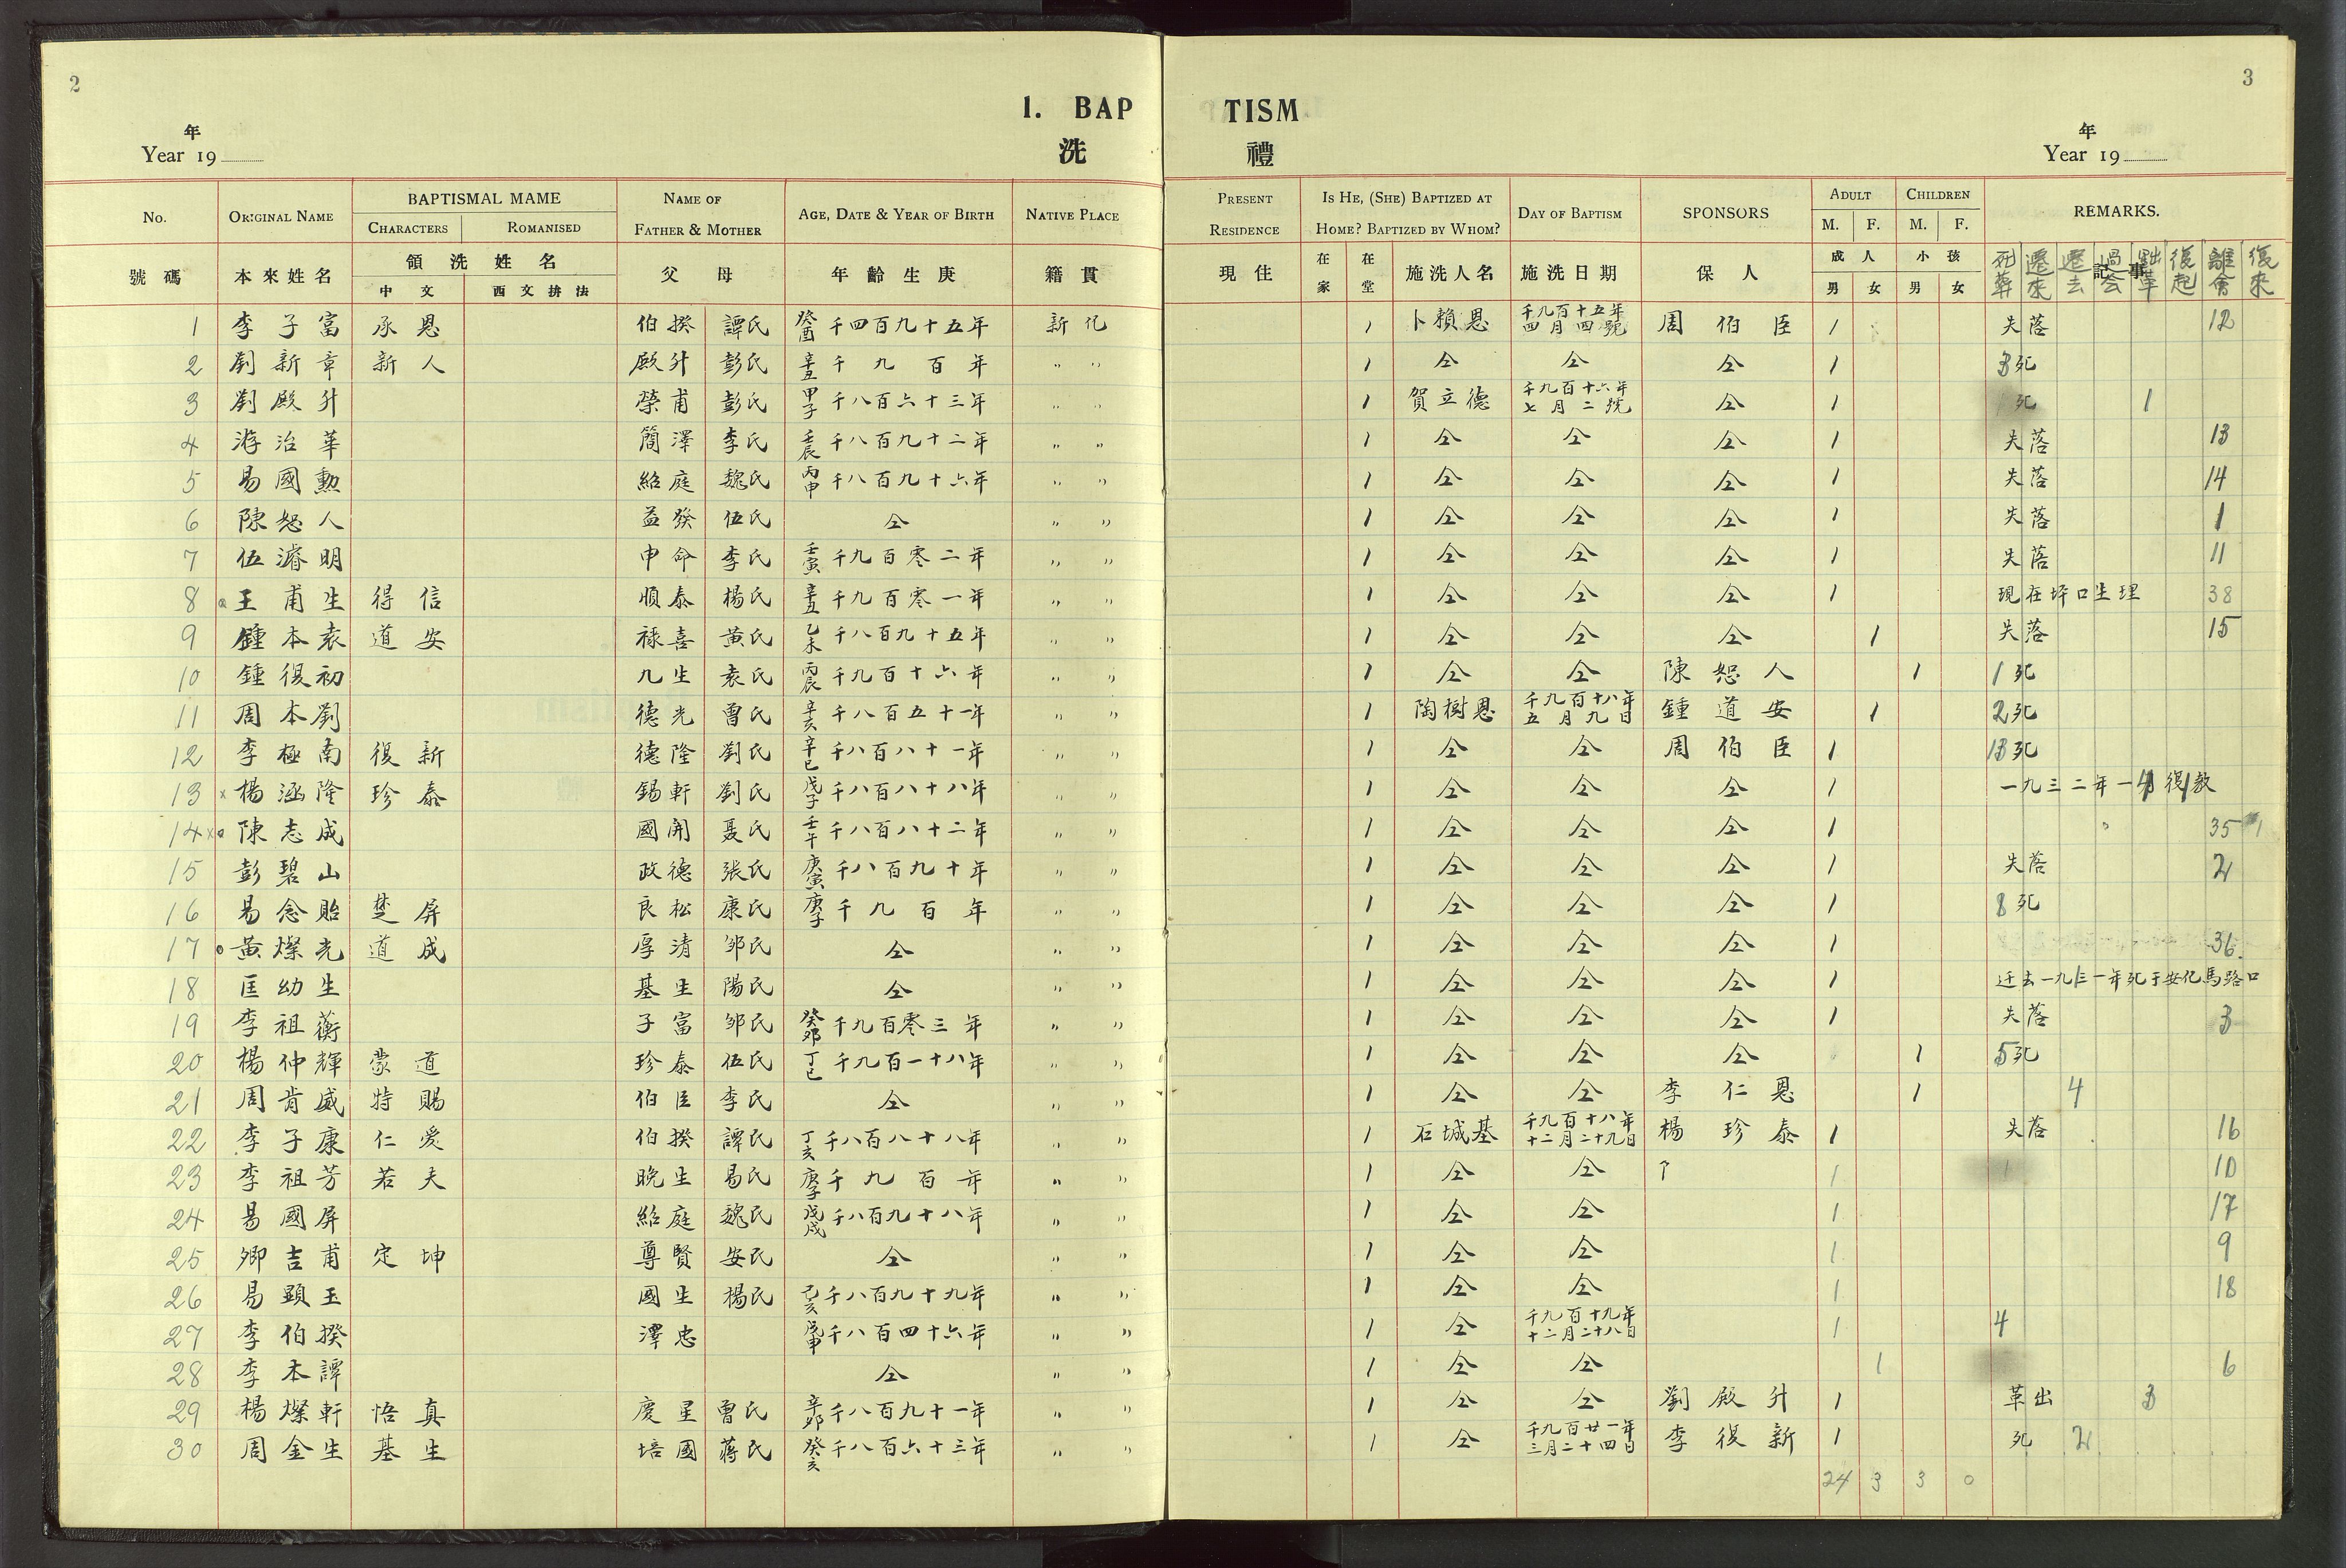 2
3
1. BAP TISM
洗 禮
年
Year 19
年
Year 19
No. ORIGINAL NAME BAPTISMAL MAME NAME OF FATHER & MOTHER AGE, DATE & YEAR OF BIRTH NATIVE PLACE PRESENT RESIDENCE IS HE, (SHE) BAPTIZED AT HOME? BAPTIZED BY WHOM? DAY OF BAPTISM SPONSORS ADULT CHILDREN REMARKS.
CHARACTERS ROMANISED M. F. M. F.
號碼 本來姓名 領洗姓名 父母 年齡生庚 籍貫 現住 在家 在堂 施洗人名 施洗日期 保人 成人 小孩 記事
中文 西文拼法 男 女 男 女 死葬 遷來 遷去 過会 黜革 復起 離會 復來
1 李子富 承恩 伯揆 譚氏 癸酉 千四百九十五年 新化 1 卜賴恩 千九百十五年四月四號 周伯臣 1 失落 12
2 劉新章 新人 殿升 彭氏 辛丑 千九百年 〃 〃 1 仝 仝 仝 1 3 死
3 劉殿升 榮甫 彭氏 甲子 千八百六十三年 〃 〃 1 賀立德 千九百十六年七月二號 仝 1 1 死 1
4 游治華 簡澤 李氏 壬辰 千八百九十二年 〃 〃 1 仝 仝 仝 1 失落 13
5 易國勲 紹庭 魏氏 丙申 千八百九十六年 〃 〃 1 仝 仝 仝 1 失落 14
6 陳恕人 益發 伍氏 仝 〃 〃 1 仝 仝 仝 1 失落 1
7 伍濬明 申命 李氏 壬寅 千九百零二年 〃 〃 1 仝 仝 仝 1 失落 11
8 王甫生 得信 順泰 楊氏 辛丑 千九百零一年 〃 〃 1 仝 仝 仝 1 現在坪口生理 38
9 鍾本袁 道安 祿喜 黃氏 乙未 千八百九十五年 〃 〃 1 仝 仝 仝 1 失落 15
10 鍾復初 九生 袁氏 丙辰 千九百十六年 〃 〃 1 仝 仝 陳恕人 1 1 死
11 周本劉 德光 曾氏 辛亥 千八百五十一年 〃 〃 1 陶樹恩 千九百十八年五月九日 鍾道安 1 2 死
12 李極南 復新 德隆 劉氏 辛巳 千八百八十一年 〃 〃 1 仝 仝 周伯臣 1 13 死
13 x 楊涵隆 珍泰 錫軒 劉氏 戊子 千八百八十八年 〃 〃 1 仝 仝 仝 1 一九三二年一月復教
14 x 陳志成 國開 聂氏 壬午 千八百八十二年 〃 〃 1 仝 仝 仝 1 35 1
15 彭碧山 政德 張氏 庚寅 千八百九十年 〃 〃 1 仝 仝 仝 1 失落 2
16 易念貽 楚屏 良松 康氏 庚子 千九百年 〃 〃 1 仝 仝 仝 1 8 死
17 黃燦光 道成 厚清 邹氏 仝 〃 〃 1 仝 仝 仝 1 36
18 匡幼生 基生 陽氏 仝 〃 〃 1 仝 仝 仝 1 迁去一九三一年死于安化馬路口
19 李祖蘅 子富 邹氏 癸卯 千九百零三年 〃 〃 1 仝 仝 仝 1 失落 3
20 楊仲輝 蒙道 珍泰 伍氏 丁巳 千九百一十八年 〃 〃 1 仝 仝 仝 1 5 死
21 周肯威 特賜 伯臣 李氏 仝 〃 〃 1 仝 仝 李仁恩 1 4
22 李子康 仁愛 伯揆 譚氏 丁亥 千八百八十八年 〃 〃 1 石城基 千九百十八年十二月二十九日 楊珍泰 1 失落 16
23 李祖芳 若夫 晚生 易氏 庚子 千九百年 〃 〃 1 仝 仝 1 1 10
24 易國屏 紹庭 魏氏 戊戌 千八百九十八年 〃 〃 1 仝 仝 1 17
25 卿吉甫 定坤 尊賢 安氏 仝 〃 〃 1 仝 仝 1 9
26 易顕玉 國生 楊氏 己亥 千八百九十九年 〃 〃 1 仝 仝 1 18
27 李伯揆 澤忠 千八百四十六年 〃 〃 1 仝 千九百十九年十二月二十八日 1 4
28 李本譚 仝 〃 〃 1 仝 仝 1 6
29 楊燦軒 悟真 慶星 曾氏 辛卯 千八百九十一年 〃 〃 1 仝 仝 劉殿升 1 革出 3
30 周金生 基生 培國 蔣氏 癸亥 千八百六十三年 〃 〃 1 仝 千九百廿一年三月二十四日 李復新 1 死 2
24 3 3 0